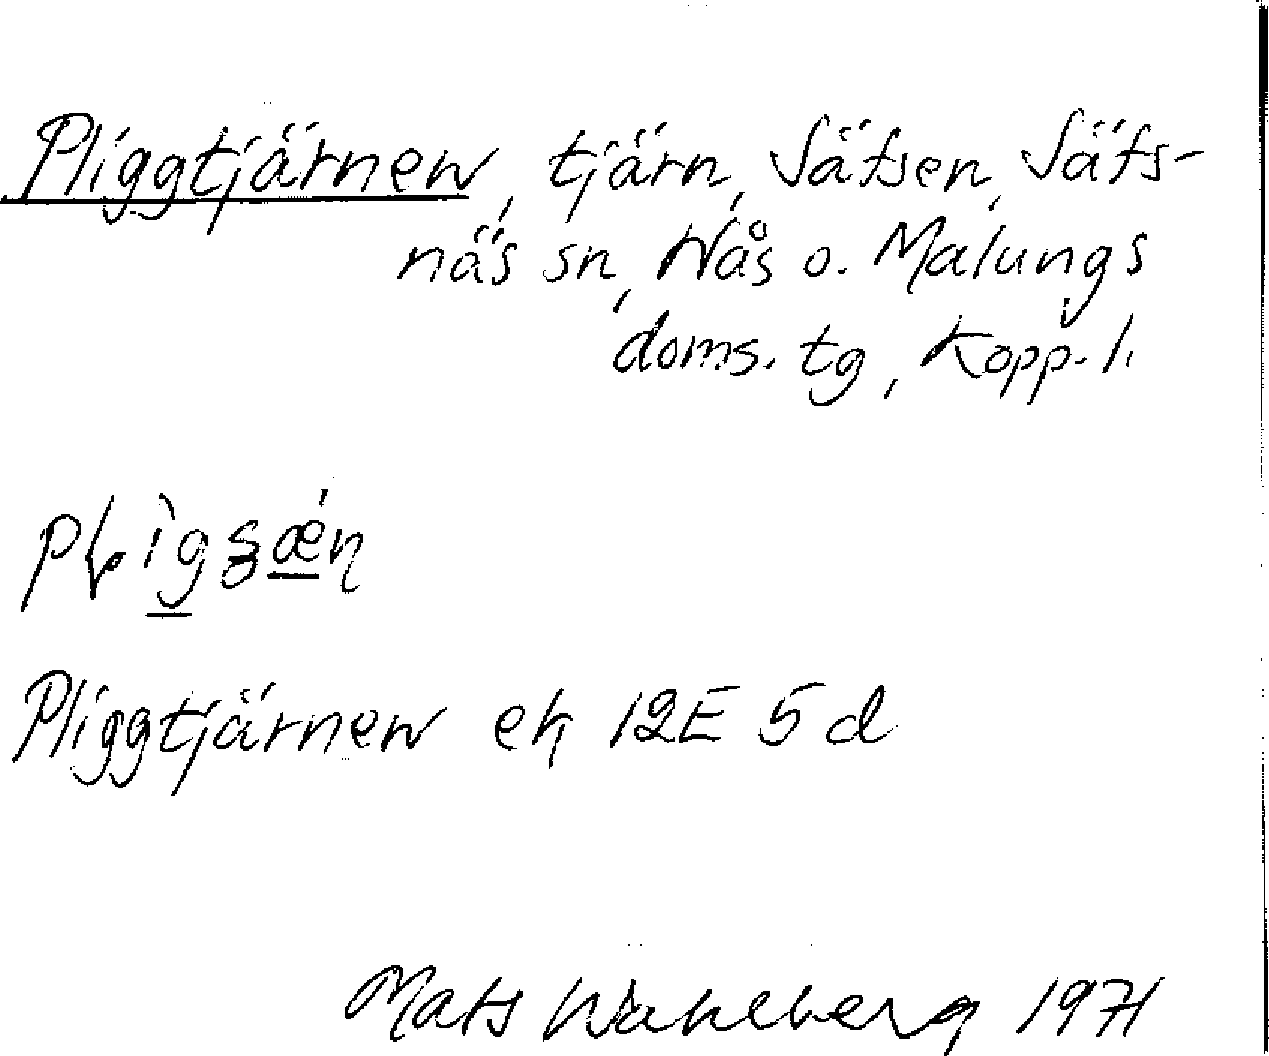 Pliggtjärnen, tjärn, Säfsen, Säfs-
näs sn, Nås o. Malungs
doms. tg, Kopp. l.
Pliggtjärnen ek 12E 5d
Mats Wahlberg 1971